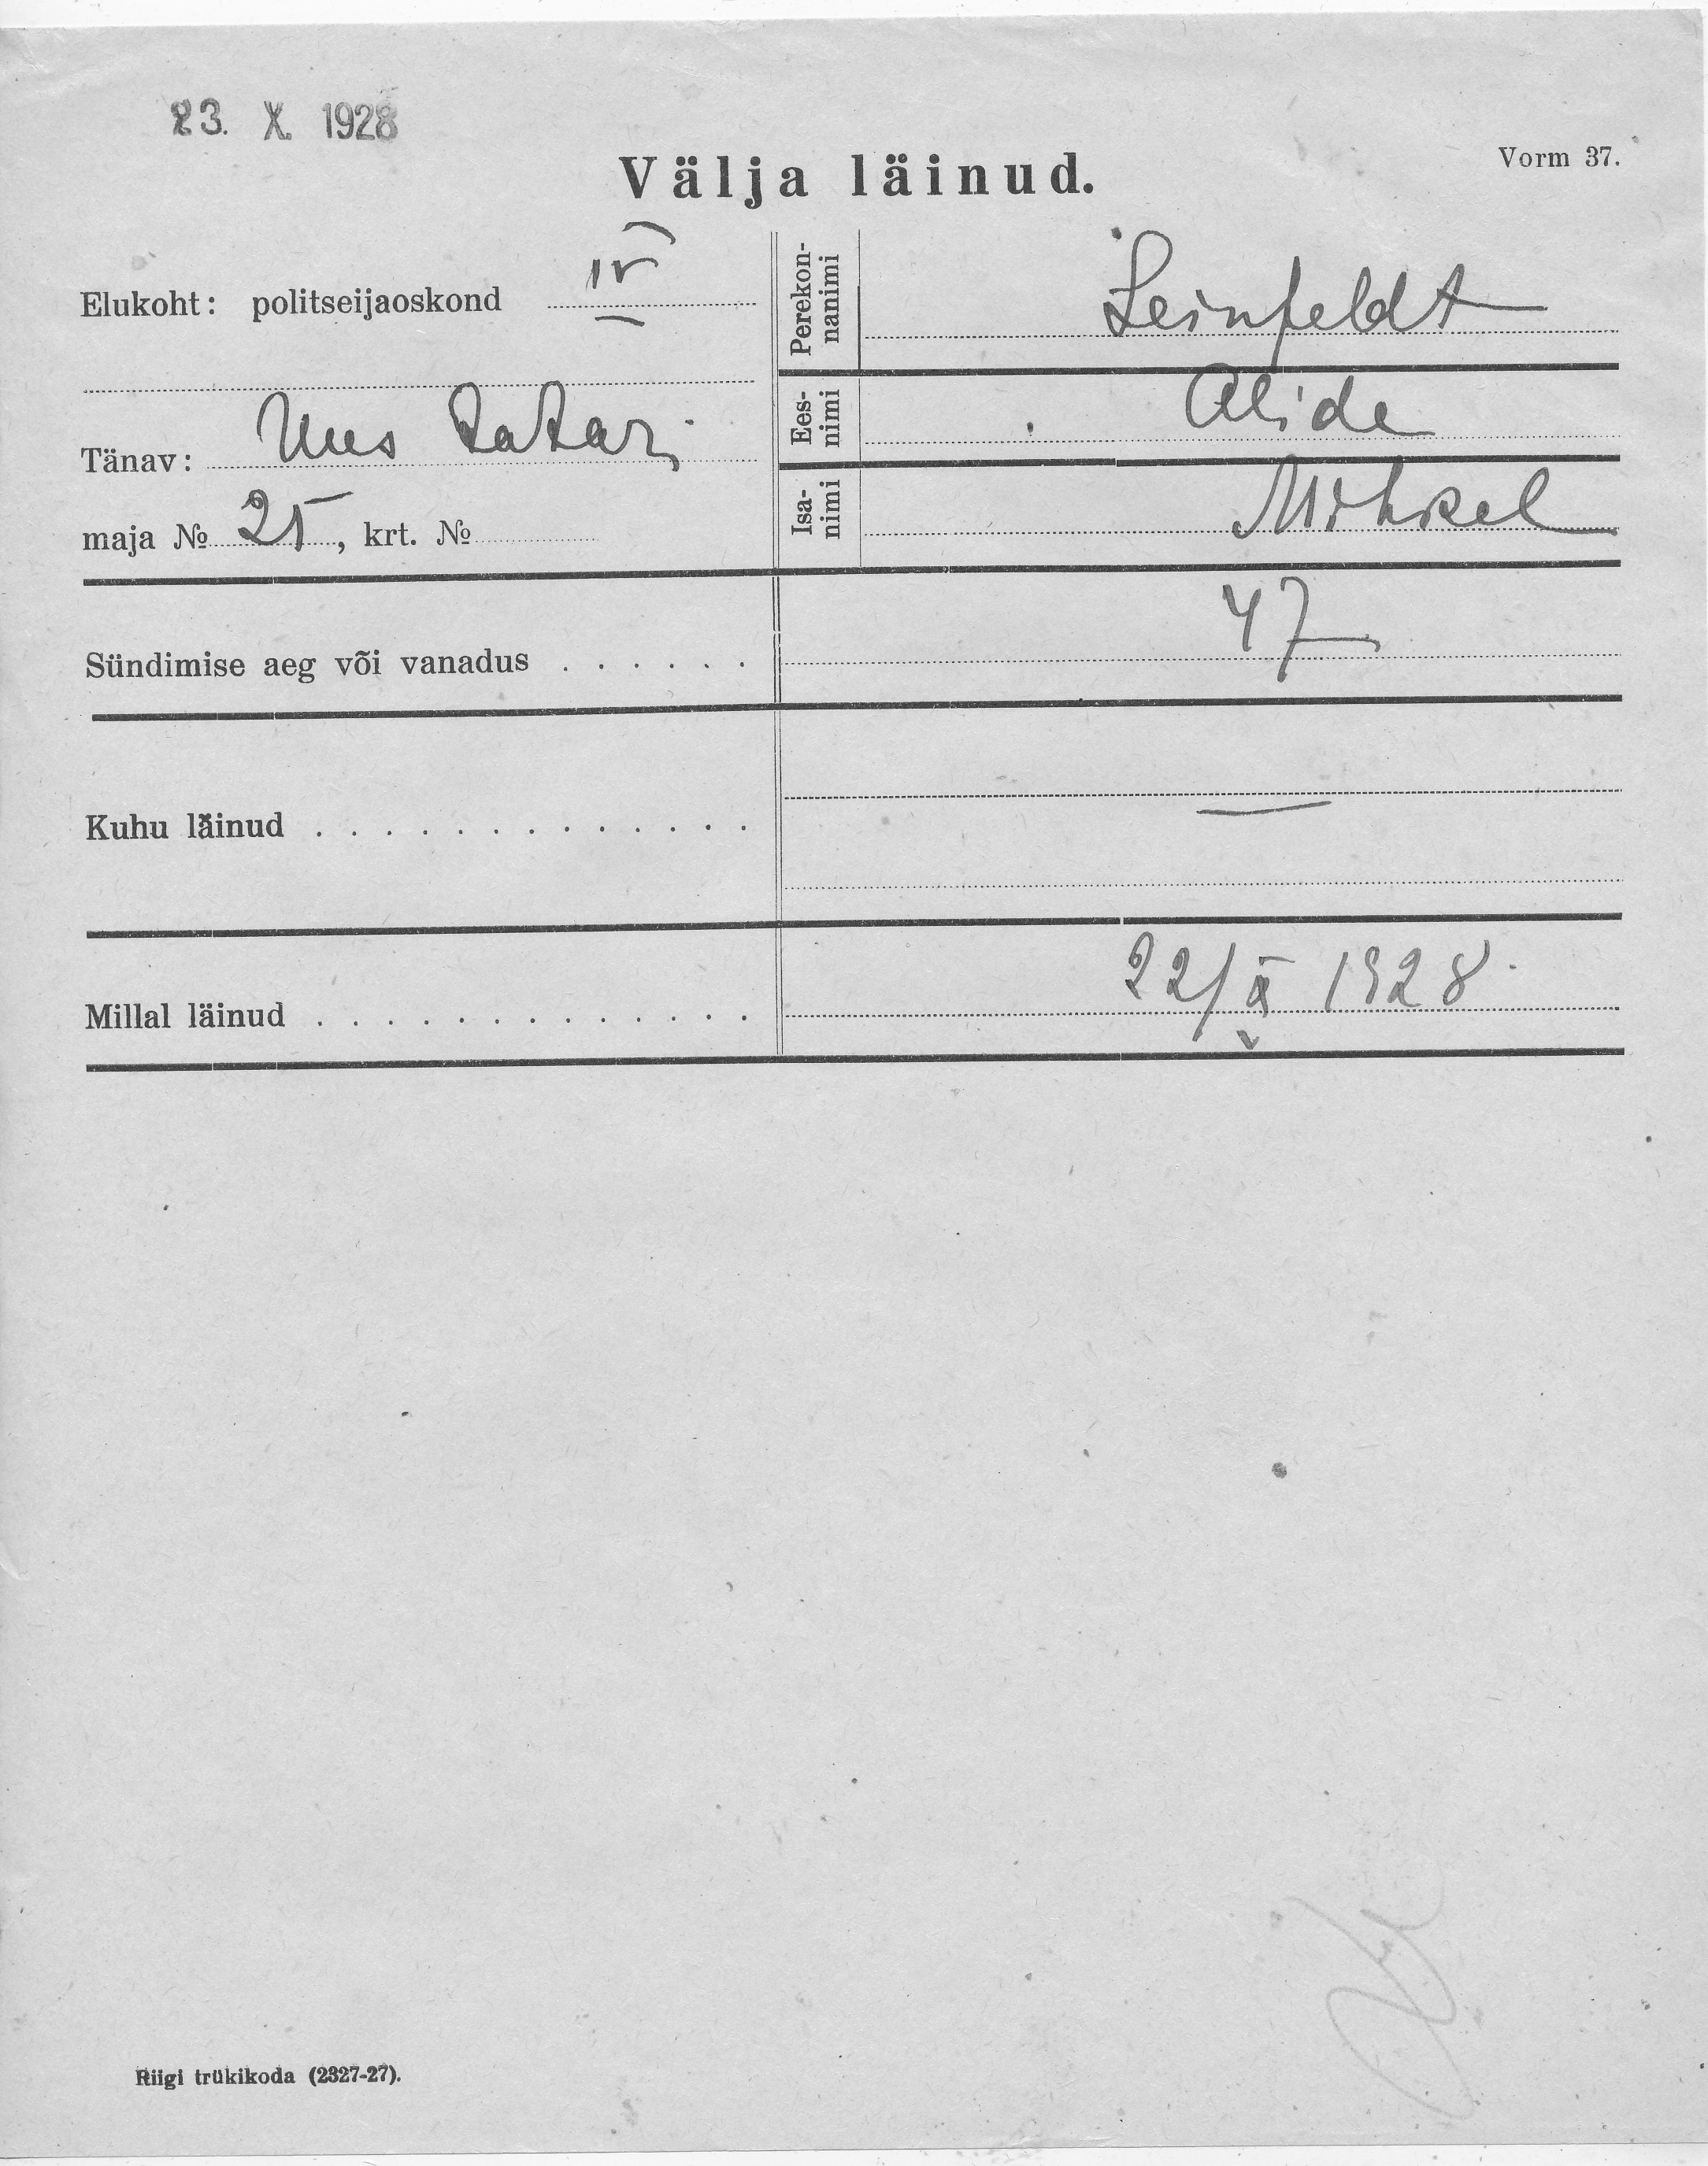 23. X. 1928
Välja läinud.
Vorm 37.
Elukoht: politseijaoskond IV
Tänav: Uus Tatari
maja № 25, krt. №
Perekonnanimi Leinfeldt
Eesnimi Alide
Isanimi Mihkel
Sündimise aeg või vanadus . . . . . . 47
Kuhu läinud . . . . . . . . . . . . . —
Millal läinud . . . . . . . . . . . . . 22/X 1928
Riigi trükikoda (2327-27).